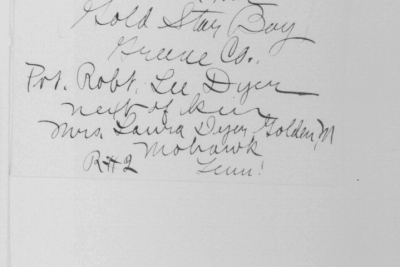 Gold Star Boy
Greene Co.
Pvt. Robt. Lee Dyer
next of kin
Mrs. Laura Dyer Golden, M
Mohawk
R#2 Tenn.